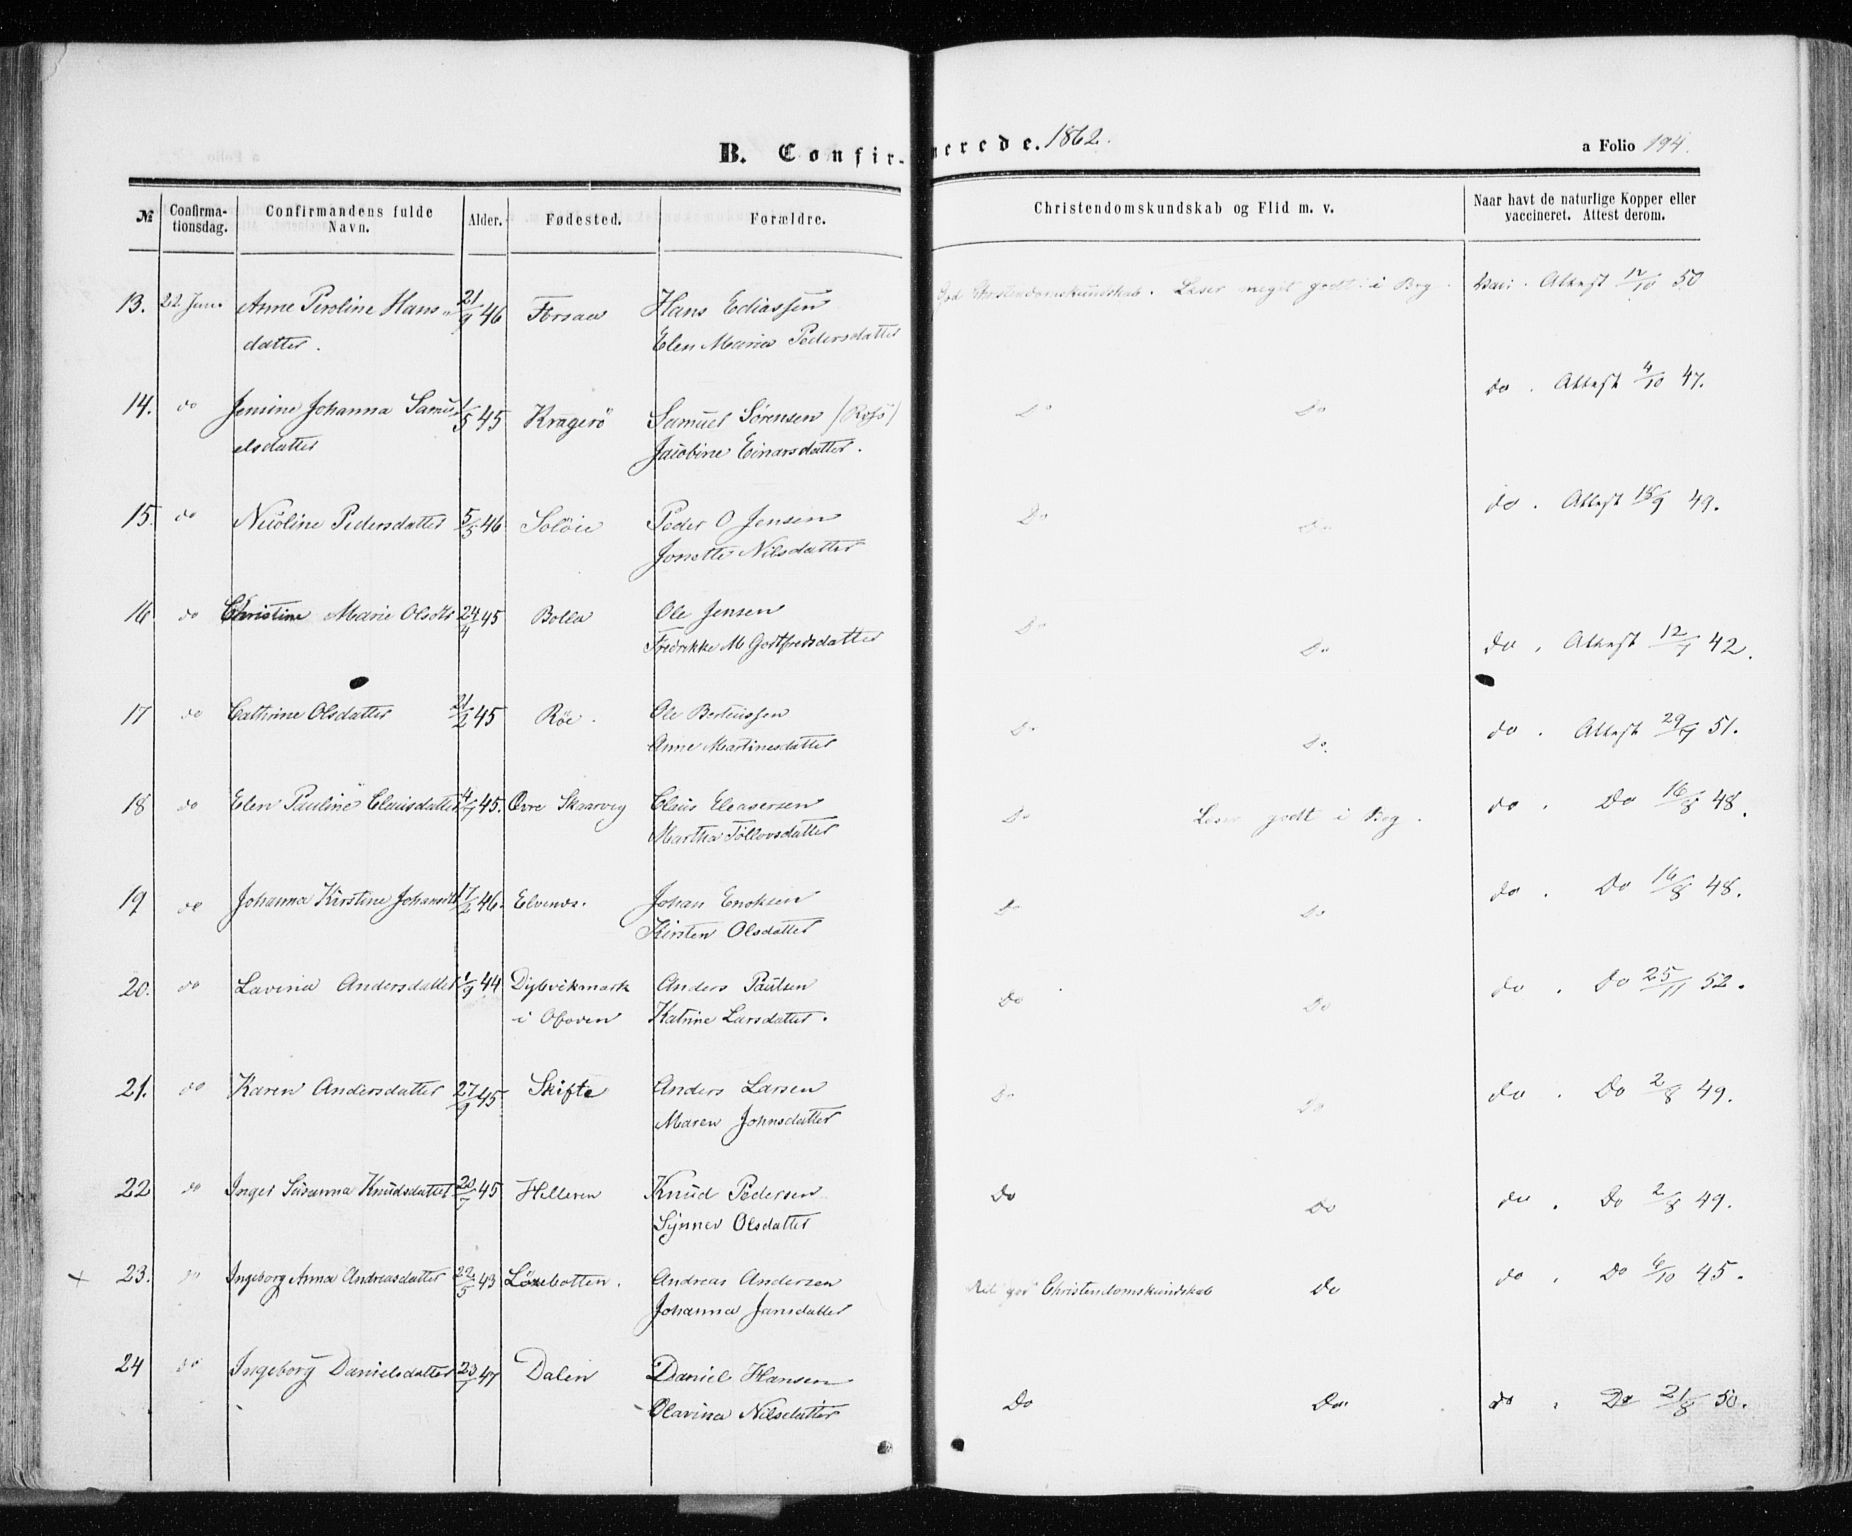 B. Confirmerede. 1862.
a Folio 194.
№ Confirmationsdag. Confirmandens fulde Navn. Alder. Fødested. Forældre. Christendomskundskab og Flid m. v. Naar havt de naturlige Kopper eller vaccineret. Attest derom.
13. 22 Juni Anne Peroline Hans- 21/9 46 Forsaa Hans Ediassen God Christendomskundskab. Leser meget godt i Bog. Vacc. Attest 12/10 50
datter. Elen Maria Pedersdatter
14. do Jensine Johanna Samu- 1/5 45 Kragerö Samuel Sörensen Do Do do. Attest 4/10 47.
elsdatter Jacobine Einarsdatter.
15. do Nicoline Pedersdatter 5/5 46 Solöie Peder O Jensen Do Do do. Attest 18/9 49.
Jonette Nilsdatter
16 do Christine Marie Olsdtr 24/4 45 Bolla Ole Jensen Do Do do. Attest 12/1 42.
Fredrikke M Gotfredsdatter
17 do Cathrine Olsdatter 21/2 45 Röe. Ole Berteussen Do Do. do. Attest 29/9 51.
Anne Martinesdatter
18 do Elen Pauline Clausdatter 4/7 45. Övre Skaarvig Claus Eleasersen Do Leser godt i Bog. do. Do 16/8 48.
Martha Tollovsdatter
19 do Johanna Kirstine Johansdtr 17/2 46. Elvenes. Johan Enoksen Do Do do. Do 16/8 48.
Kirsten Olsdatter
20. do Lavina Andersdatter 1/9 44 Dybvikmark Anders Paulsen Do Do do. Do 25/11 52.
i Ofoven Katrine Larsdatter.
21. do Karen Andersdatter 27/9 45 Skifte Anders Larsen Do Do do. Do 2/8 49.
Maren Johnsdatter
22 do Inger Susanna Knudsdatter 20/7 45 Hilleren Knud Pedersen Do Do do. Do 2/8 49.
Synnev Olsdatter
+ 23. do Ingeborg Anna Andreasdatter 22/5 43 Löxebotten. Andreas Andersen Christendomskundskab Do do. Do 6/10 45.
Johanna Jansdatter
24 do Ingeborg Danielsdatter 23/7 47 Dalen Daniel Hansen Do Do do. Do 21/8 50.
Olavina Nilsdatter